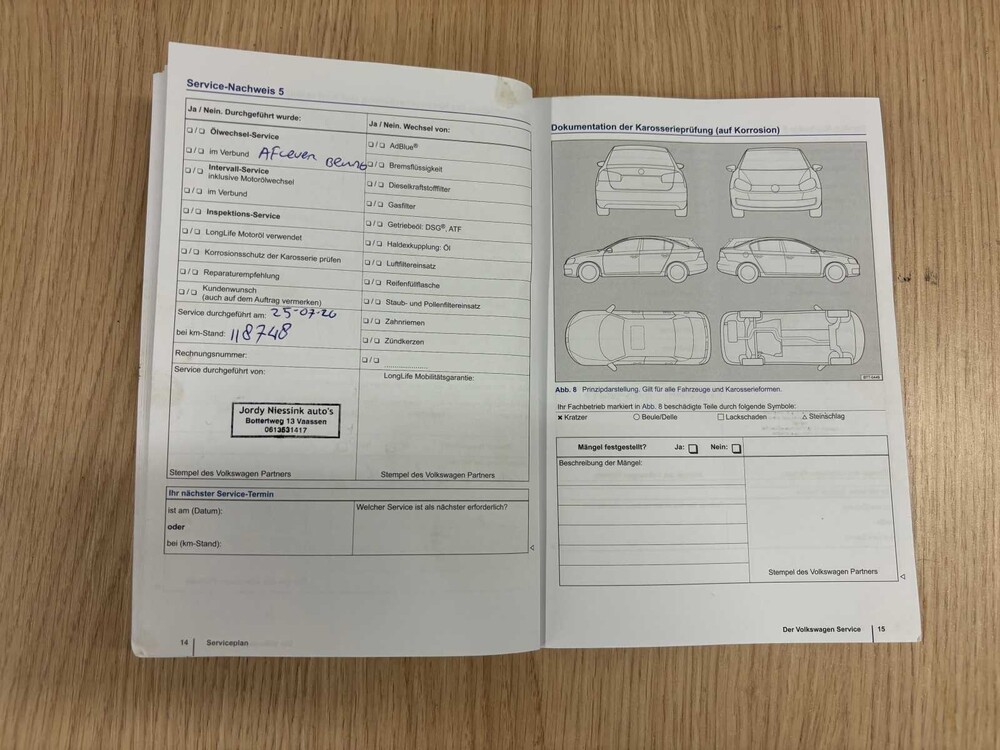 Service-Nachweis 5
Ja / Nein. Durchgeführt wurde:
Ja / Nein. Wechsel von:
❑ / ❑ Ölwechsel-Service
❑ / ❑ im Verbund
❑ / ❑ Intervall-Service
inklusive Motorölwechsel
❑ / ❑ im Verbund
❑ / ❑ Inspektions-Service
❑ / ❑ LongLife Motoröl verwendet
❑ / ❑ Korrosionsschutz der Karosserie prüfen
❑ / ❑ Reparaturempfehlung
❑ / ❑ Kundenwunsch
(auch auf dem Auftrag vermerken)
Service durchgeführt am: 25-07-26
bei km-Stand: 118748
Rechnungsnummer:
❑ / ❑ AdBlue®
❑ / ❑ Bremsflüssigkeit
❑ / ❑ Dieselkraftstofffilter
❑ / ❑ Gasfilter
❑ / ❑ Getriebeöl: DSG®; ATF
❑ / ❑ Haldexkupplung: Öl
❑ / ❑ Luftfiltereinsatz
❑ / ❑ Reifenfüllflasche
❑ / ❑ Staub- und Pollenfiltereinsatz
❑ / ❑ Zahnriemen
❑ / ❑ Zündkerzen
❑ / ❑
Service durchgeführt von:
Jordy Niessink auto's
Bottertweg 13 Vaassen
0613531417
Stempel des Volkswagen Partners
LongLife Mobilitätsgarantie:
Stempel des Volkswagen Partners
Ihr nächster Service-Termin
ist am (Datum):
oder
bei (km-Stand):
Welcher Service ist als nächster erforderlich?
14 Serviceplan
Dokumentation der Karosserieprüfung (auf Korrosion)
Abb. 8 Prinzipdarstellung. Gilt für alle Fahrzeuge und Karosserieformen.
Ihr Fachbetrieb markiert in Abb. 8 beschädigte Teile durch folgende Symbole:
✖ Kratzer ○ Beule/Delle □ Lackschaden △ Steinschlag
Mängel festgestellt? Ja: ❑ Nein: ❑
Beschreibung der Mängel:
Stempel des Volkswagen Partners
Der Volkswagen Service 15